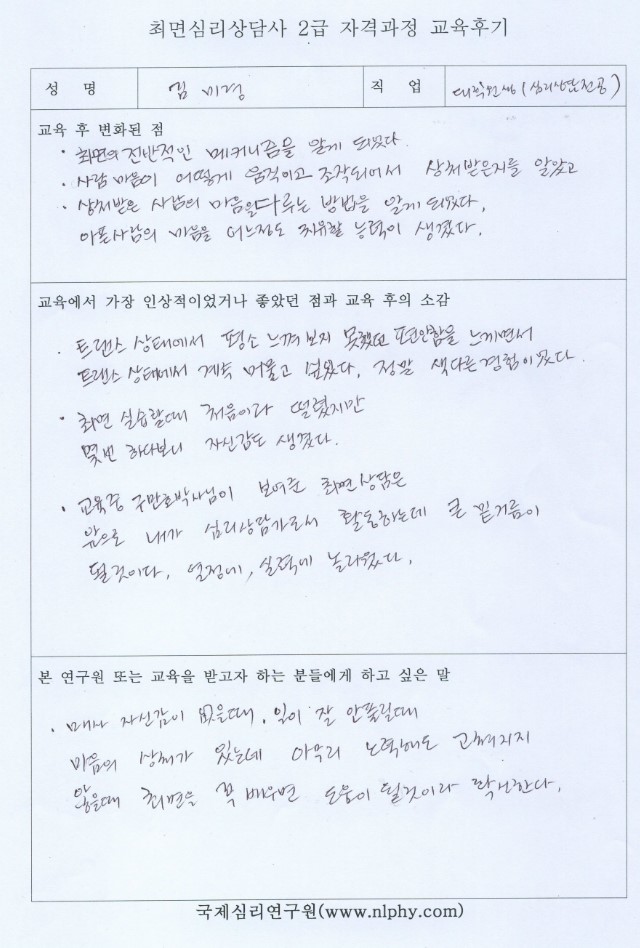 최면심리상담사 2급 자격과정 교육후기
성 명 김미경 직 업 대학원생(심리상담전공)
교육 후 변화된 점
· 최면의 전반적인 메커니즘을 알게 되었다.
· 사람 마음이 어떻게 움직이고 조작되어서 상처받은지를 알았고
· 상처받은 사람의 마음을 다루는 방법을 알게 되었다.
아픈사람의 마음을 어느정도 치유할 능력이 생겼다.
교육에서 가장 인상적이었거나 좋았던 점과 교육 후의 소감
· 트랜스 상태에서 평소 느껴보지 못했던 편안함을 느끼면서
트랜스 상태에서 계속 머물고 싶었다. 정말 색다른 경험이었다.
· 최면 실습할때 처음이라 떨렸지만
몇번 하다보니 자신감도 생겼다.
· 교육중 구만호박사님이 보여준 최면상담은
앞으로 내가 심리상담가로서 활동하는데 큰 밑거름이
될것이다. 열정에, 실력에 놀라웠다.
본 연구원 또는 교육을 받고자 하는 분들에게 하고 싶은 말
· 매사 자신감이 없을때, 일이 잘 안풀릴때
마음의 상처가 있는데 아무리 노력해도 고쳐지지
않을때 최면을 꼭 배우면 도움이 될것이라 확신한다.
국제심리연구원(www.nlphy.com)